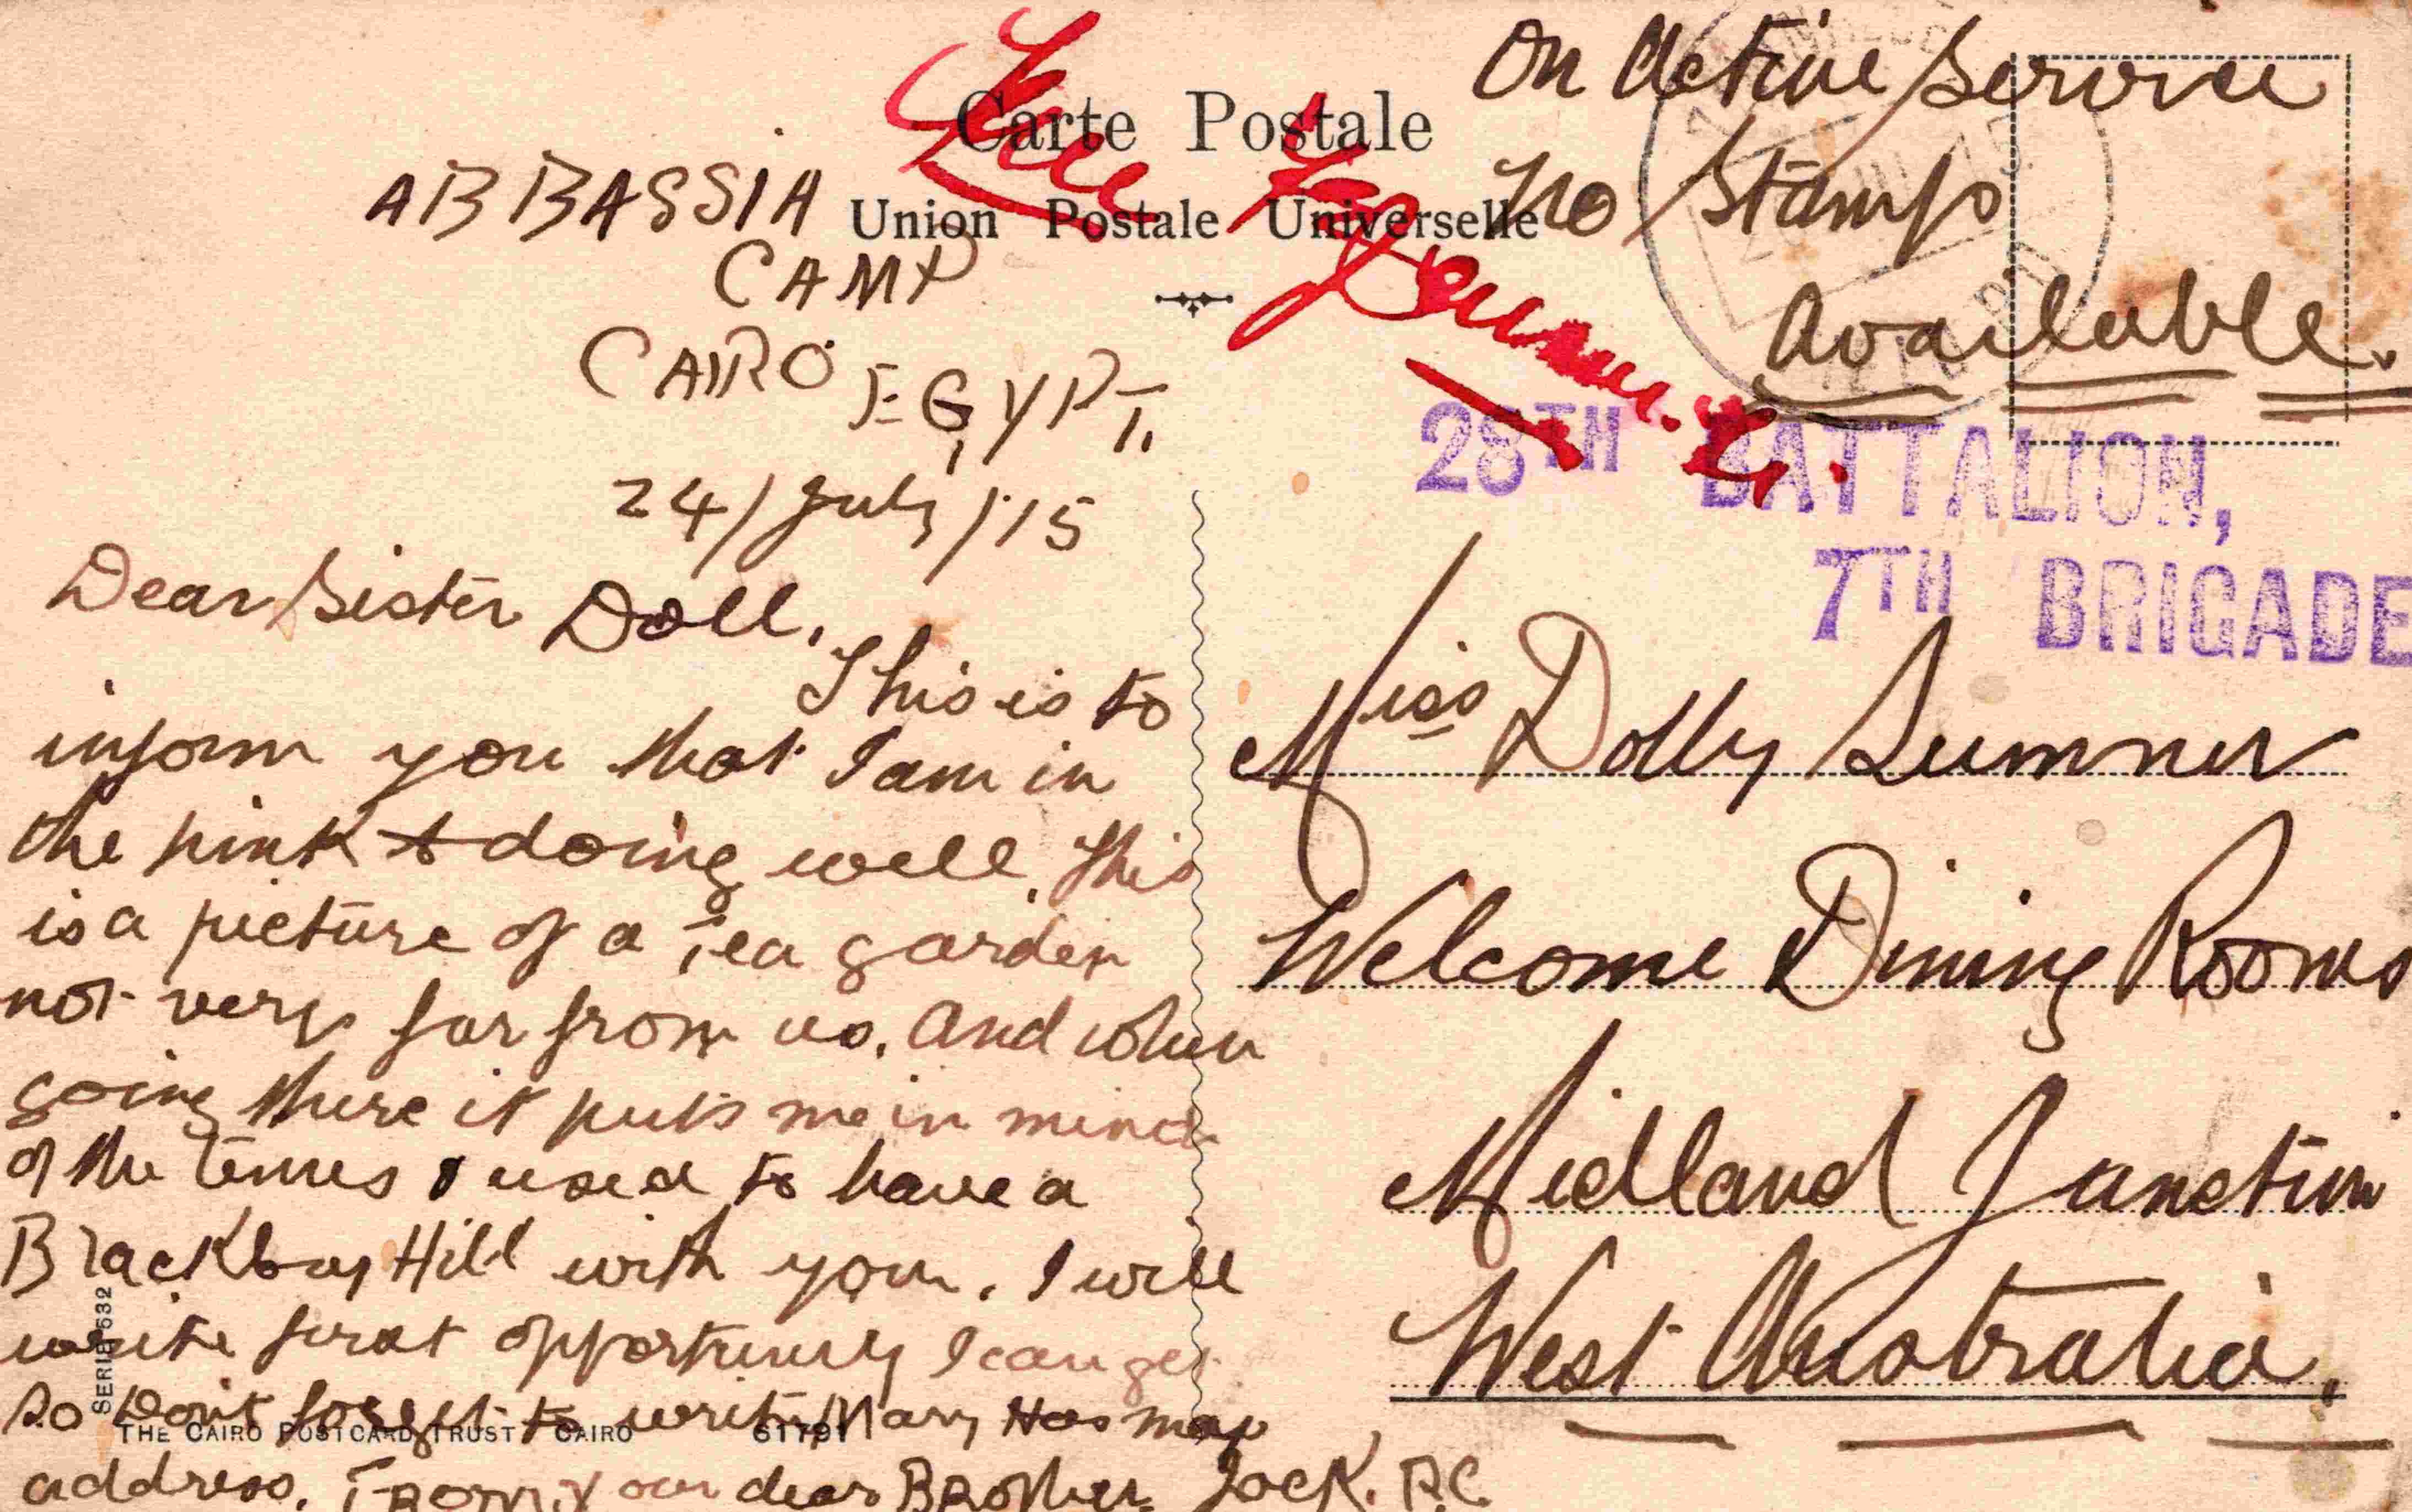 Carte Postale
Union Postale Universelle
On Active Service
No Stamps
Available.
28TH BATTALION,
7TH BRIGADE
ABBASSIA
CAMP
CAIRO EGYPT.
24/July/15
Dear Sister Doll,
This is to
inform you that I am in
the pink & doing well. This
is a picture of a Tea garden
not very far from us. And when
going there it puts me in mind
of the times I used to have a
Blackboy Hill with you. I will
write first opportunity I can get
So Dont forget to write Mary Has my
address. From Your dear Brother Jock. R.C.
Miss Dolly Sumner
Welcome Dining Rooms
Midland Junction
West Australia.
SERIE 632
THE CAIRO POSTCARD TRUST CAIRO 61791